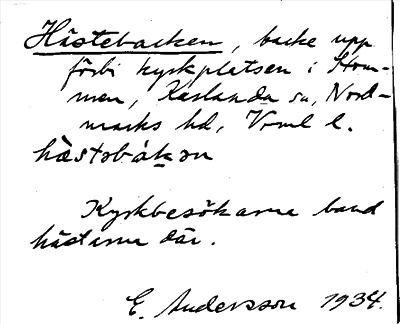 Hästebacken, backe upp
förbi kyrkpletsen i Blom-
men, Karlanda sn, Nord-
marks hd, Vrml l.
hä̀stəbákən
Kyrkbesökarne band
hästarne där.
E. Andersson 1934.